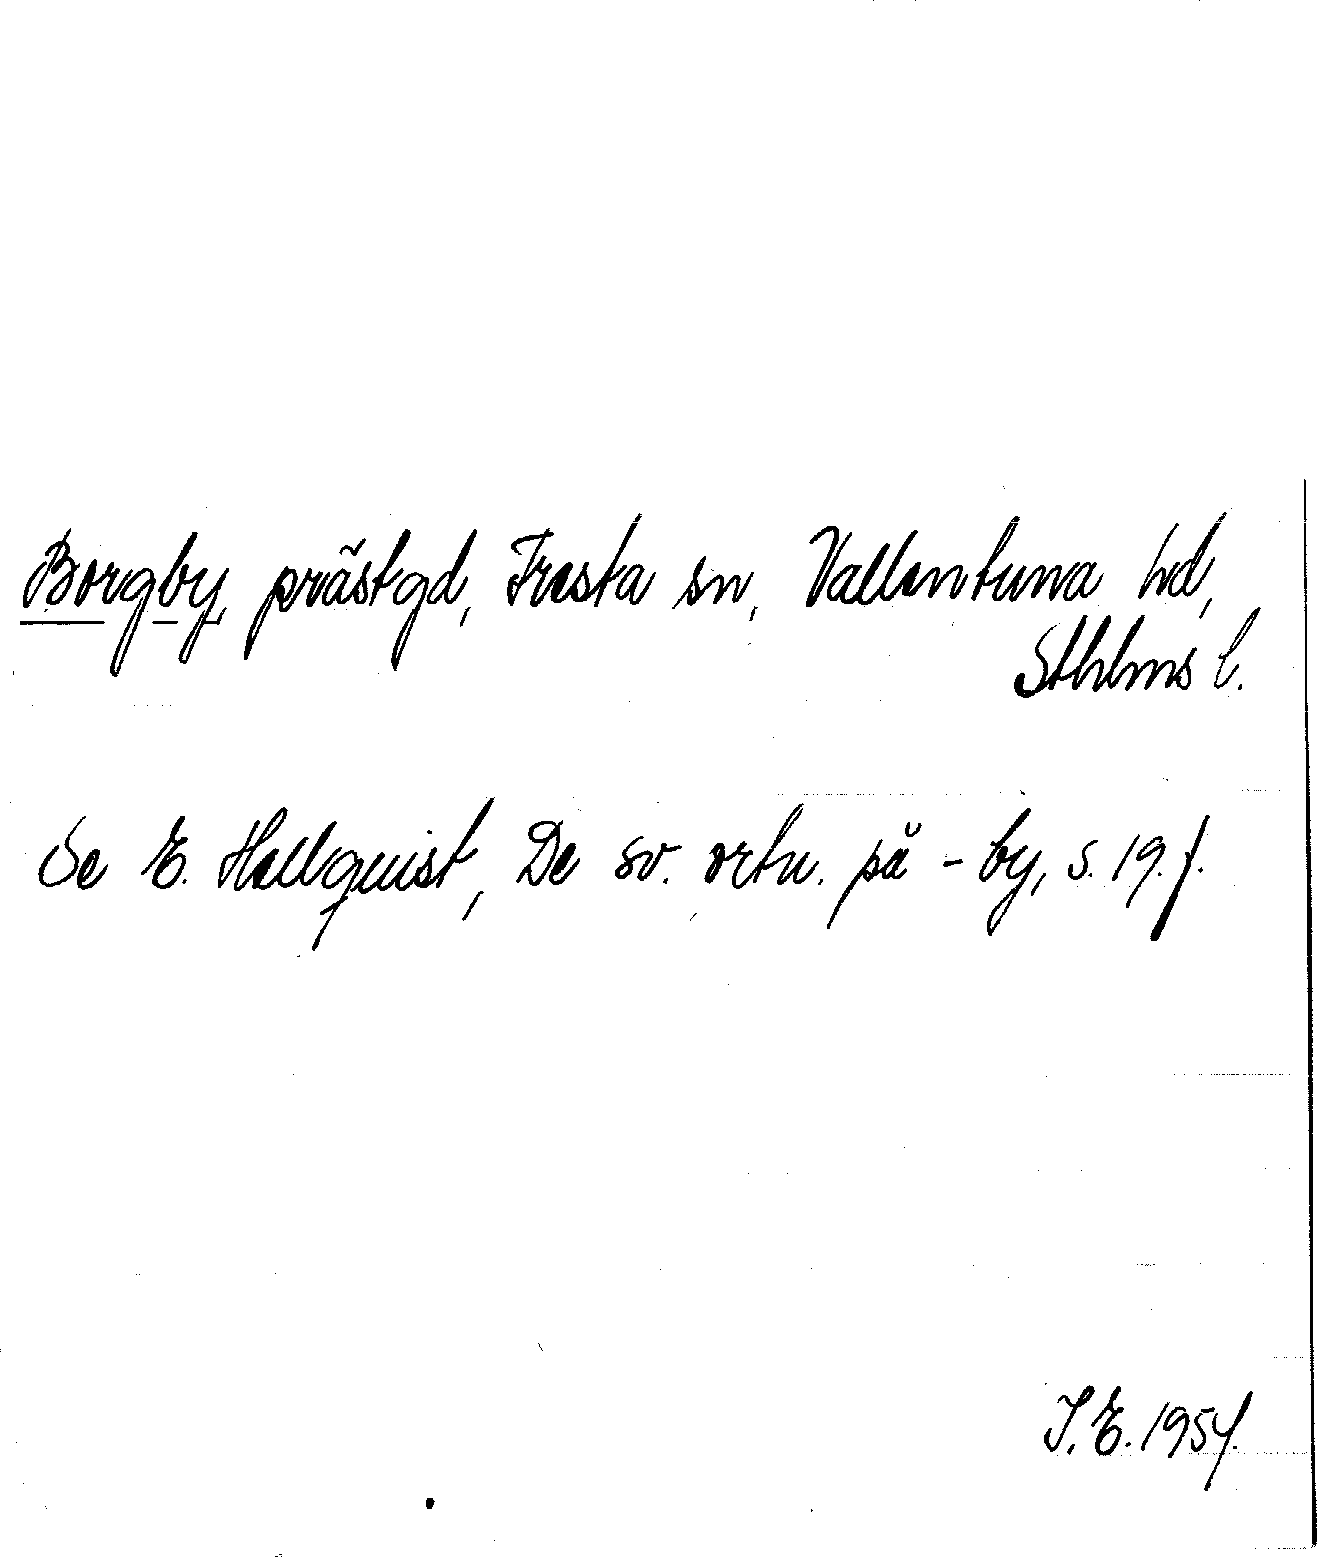 Borgby, prästgd, Fresta sn, Vallentuna hd,
Sthlms l.
Se E. Hellquist, De sv. ortn. på -by, s. 19. f.
I. E. 1954.